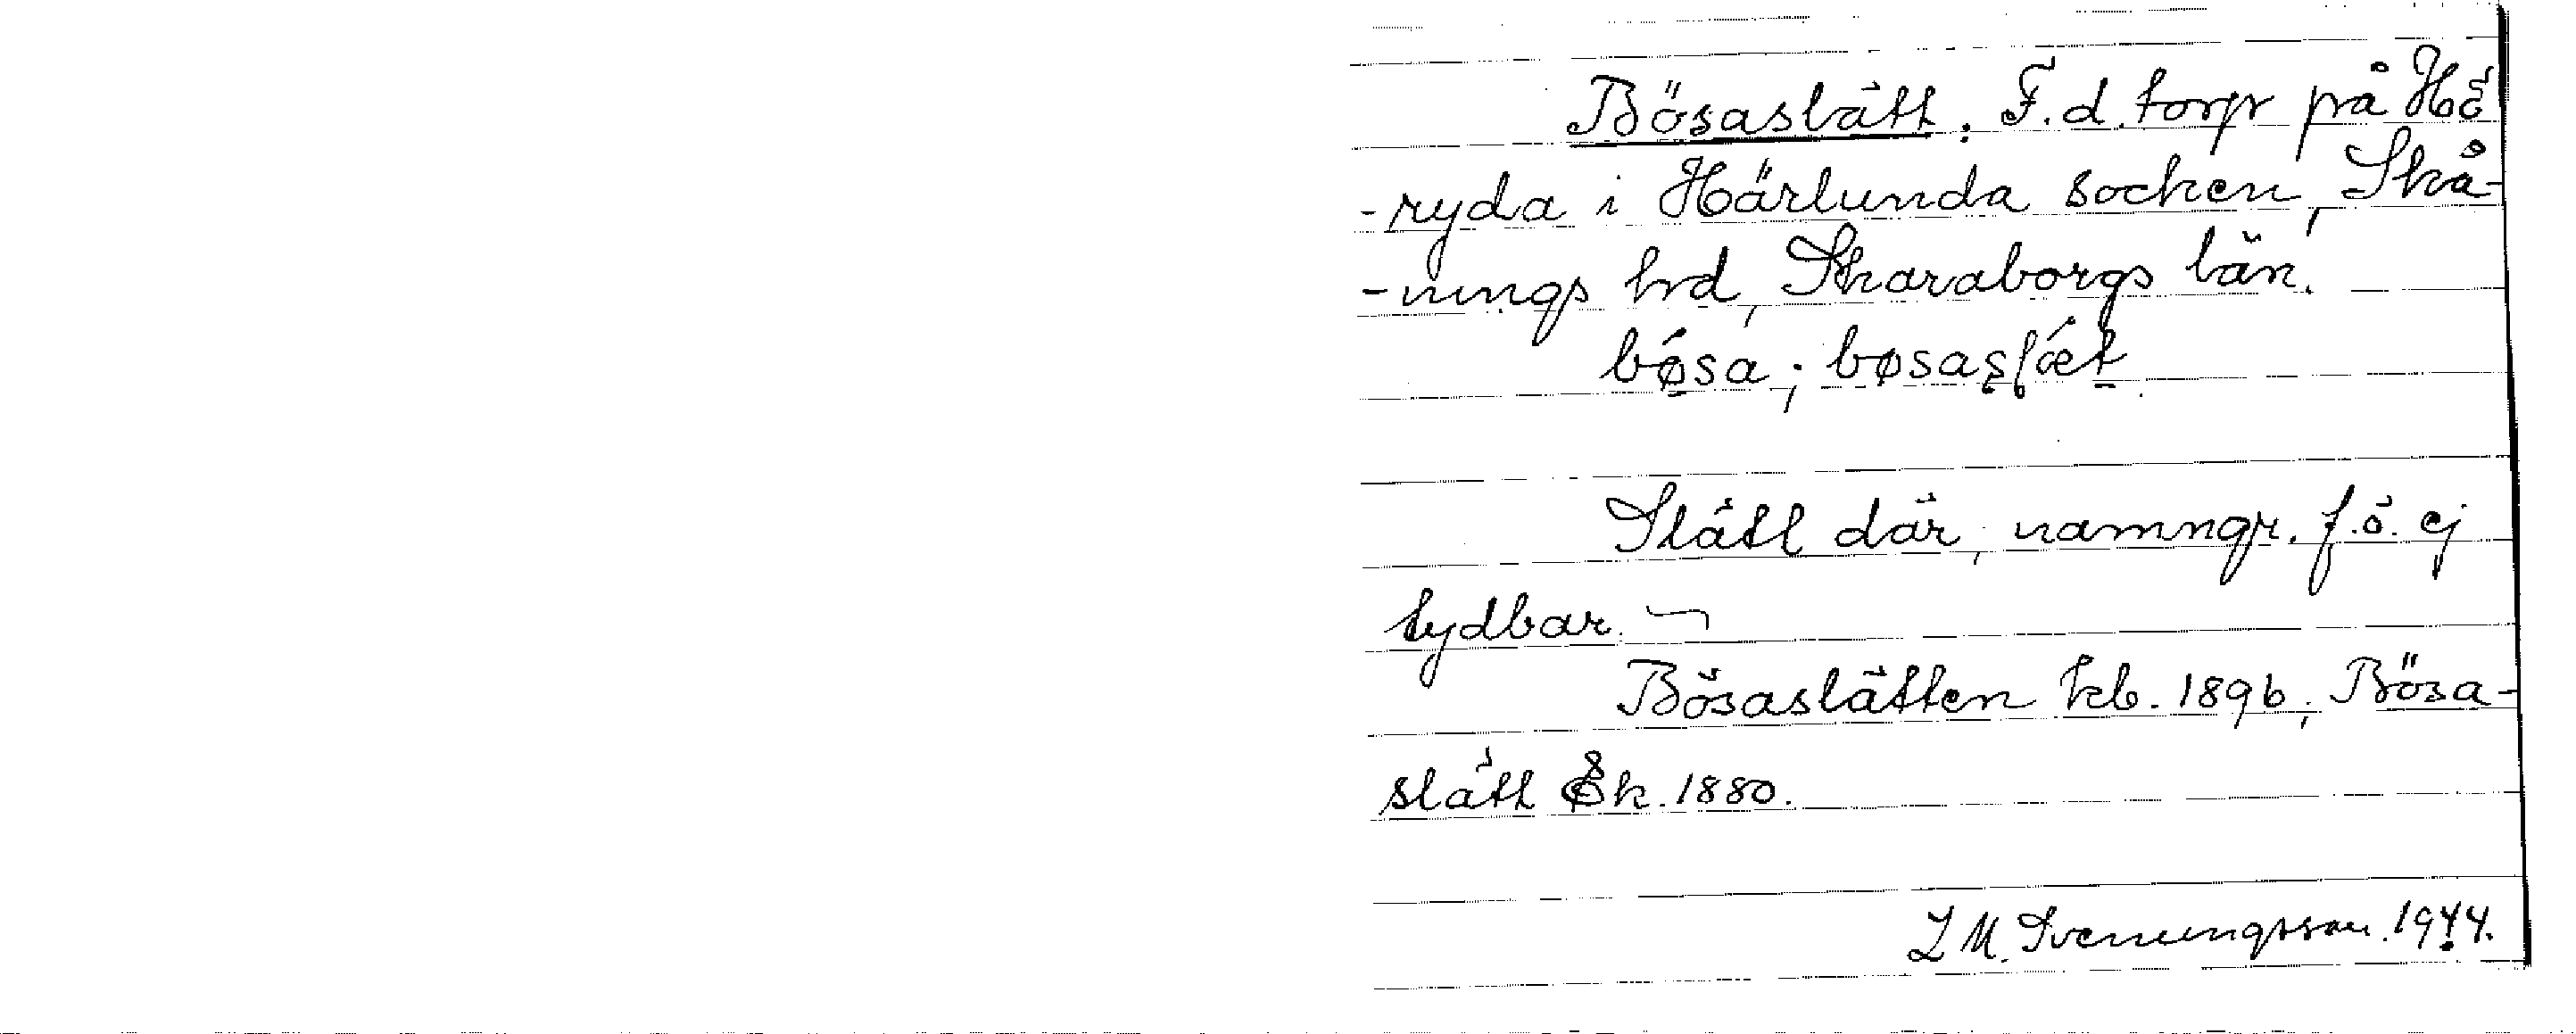 Bösaslätt. F.d. torp på Hö
-ryda i Härlunda socken, Skå-
-nings hrd, Skaraborgs län.
bǿsa; bøsasʃæt
Slätt där, namngr. f.ö. ej
tydbar. ¬
Bösaslätten kb. 1896; Bösa-
slätt Ek. 1880.
L M. Svenungsson. 1944.